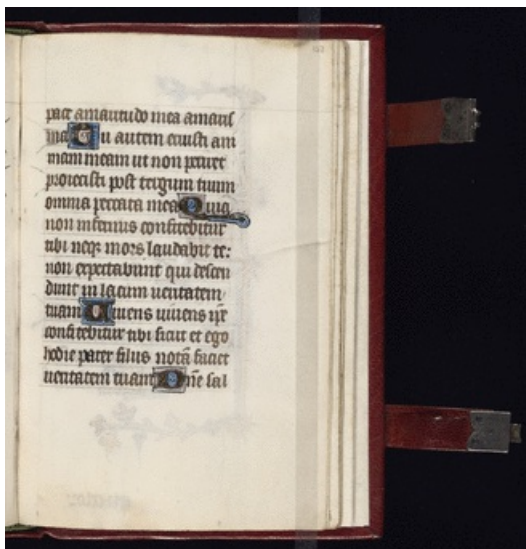 pace amaritudo mea amariss
ma Tu autem eruisti ani
mam meam ut non periret
proiecisti post tergum tuum
omnia peccata mea Quia
non infernus confitebitur
tibi neqз mors laudabit te:
non expectabunt qui descen
dunt in lacum ueritatem
tuam Uiuens uiuens ipe
confitebitur tibi sicut et ego
hodie pater filiis notā faciet
ueritatem tuam Dñe sal